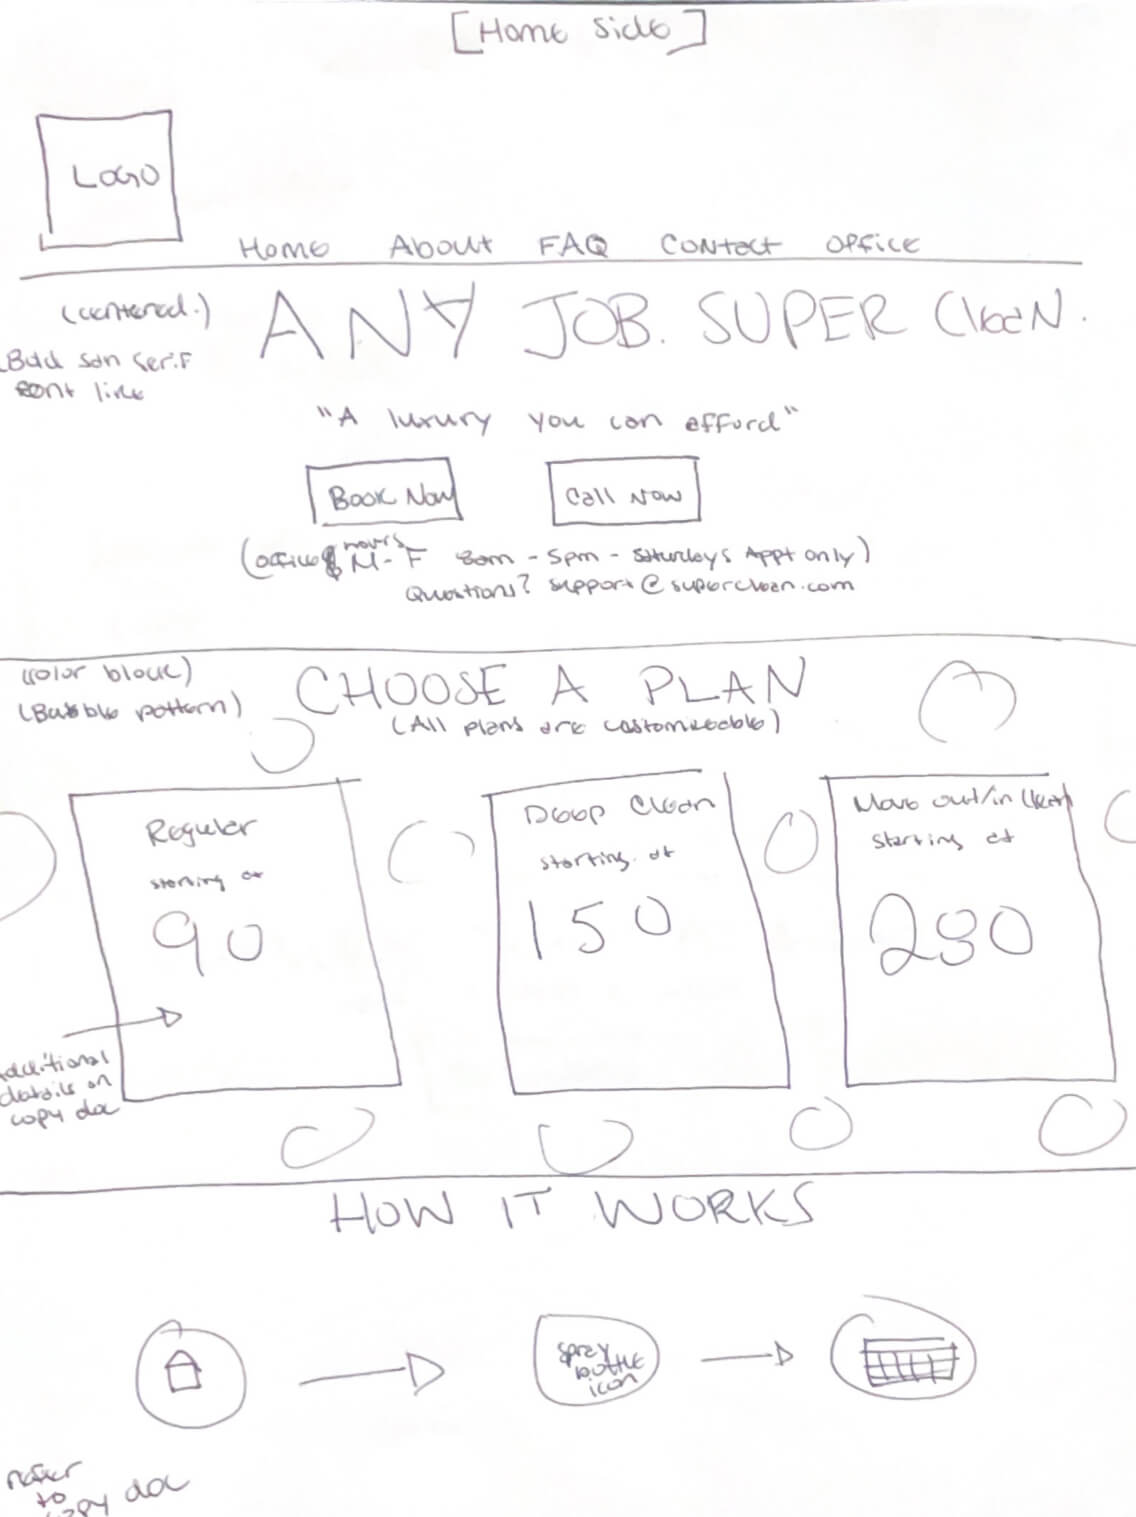 [Home Side]
LOGO
Home About FAQ Contact Office
(centered.) ANY JOB. SUPER Clean.
Bold San Serif
font like
"A luxury you can afford"
Book Now Call Now
(Office hours M-F 8am - 5pm - Saturdays Appt only)
Questions? support@superclean.com
(color block) CHOOSE A PLAN
(Bubble pattern) (All plans are customizable)
Regular
starting at
90
Deep Clean
starting at
150
Move out/in Clean
starting at
280
Additional
details on
copy doc
HOW IT WORKS
spray
bottle
icon
refer
to
copy doc